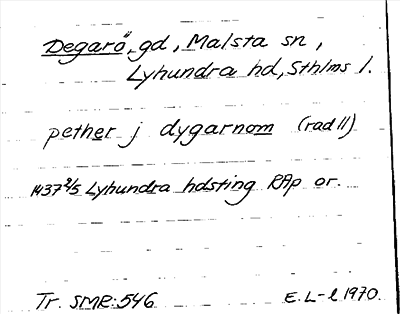 Degarö, gd, Malsta sn,
Lyhundra hd, Sthlms l.
pether j dygarnom (rad 11)
1437 2/5 Lyhundra hdsting RAp or.
Tr. SMR: 546 E. L-l 1970.